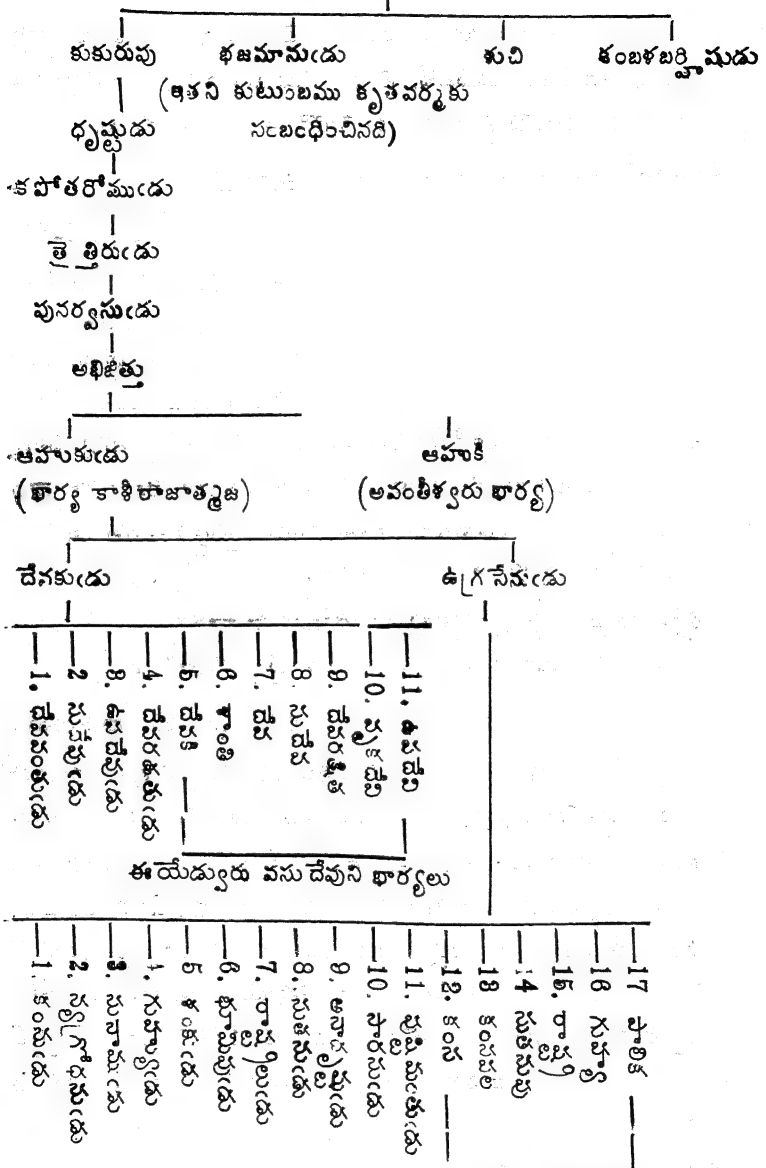 కుకురువు భజమానుఁడు శుచి కంబళబర్హిషుడు
(ఇతని కుటుంబము కృతవర్మకు
ధృష్టుడు సంబంధించినది)
కపోతరోముఁడు
తైత్తిరుఁడు
పునర్వసుఁడు
అభిజిత్తు
ఆహుకుఁడు ఆహుకి
(భార్య కాశీరాజాత్మజ) (అవంతీశ్వరు భార్య)
దేవకుఁడు ఉగ్రసేనుఁడు
1. దేవవంతుఁడు
2 సుదేవుఁడు
3. ఉపదేవుఁడు
4. దేవరక్షితుఁడు
5. దేవకి
6. శాంతి
7. దేవ
8. సుదేవ
9. దేవరక్షిత
10. వృకదేవి
11. ఉపదేవి
ఈ యేడ్వురు వసుదేవుని భార్యలు
1. కంసుఁడు
2. న్యగ్రోధనుఁడు
3. సునాముఁడు
4. గుహ్యుఁడు
5 శంకుఁడు
6. భూమిపుఁడు
7. రాష్ట్రిలుఁడు
8. సుతనుఁడు
9. అనాదృష్టుఁడు
10. సారసుఁడు
11. పుష్టిమంతుఁడు
12. కంస
13 కంసవల
14 సుతనువు
15. రాష్ట్రి
16 గుహ్య
17 పాలిక